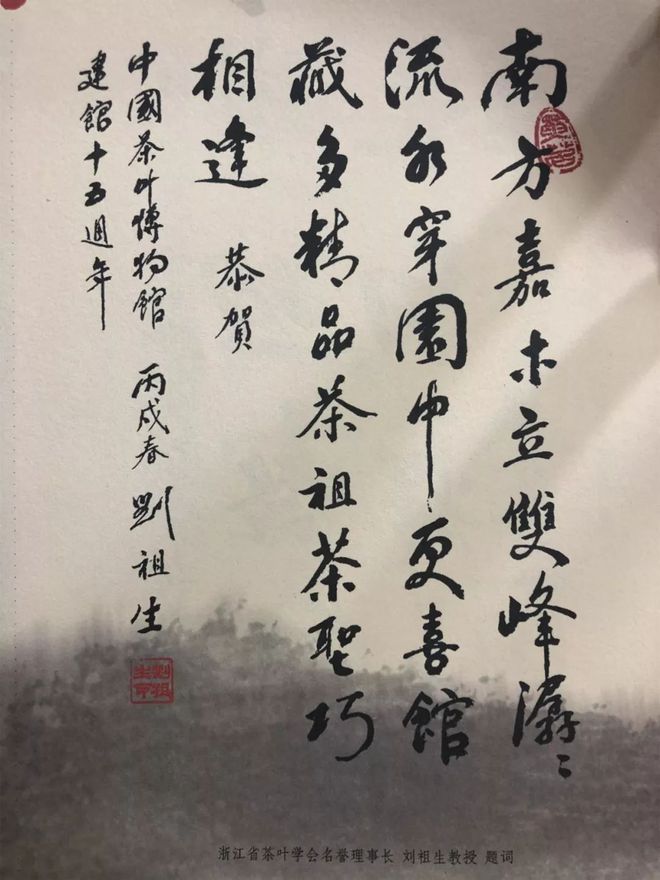 南方嘉木立雙峰潺〻
流水穿園中更喜館
藏多精品茶祖茶聖巧
相逢 恭賀
中國茶叶博物館 丙戌春 劉祖生
建館十五週年
浙江省茶叶学会名誉理事长 刘祖生教授 题词